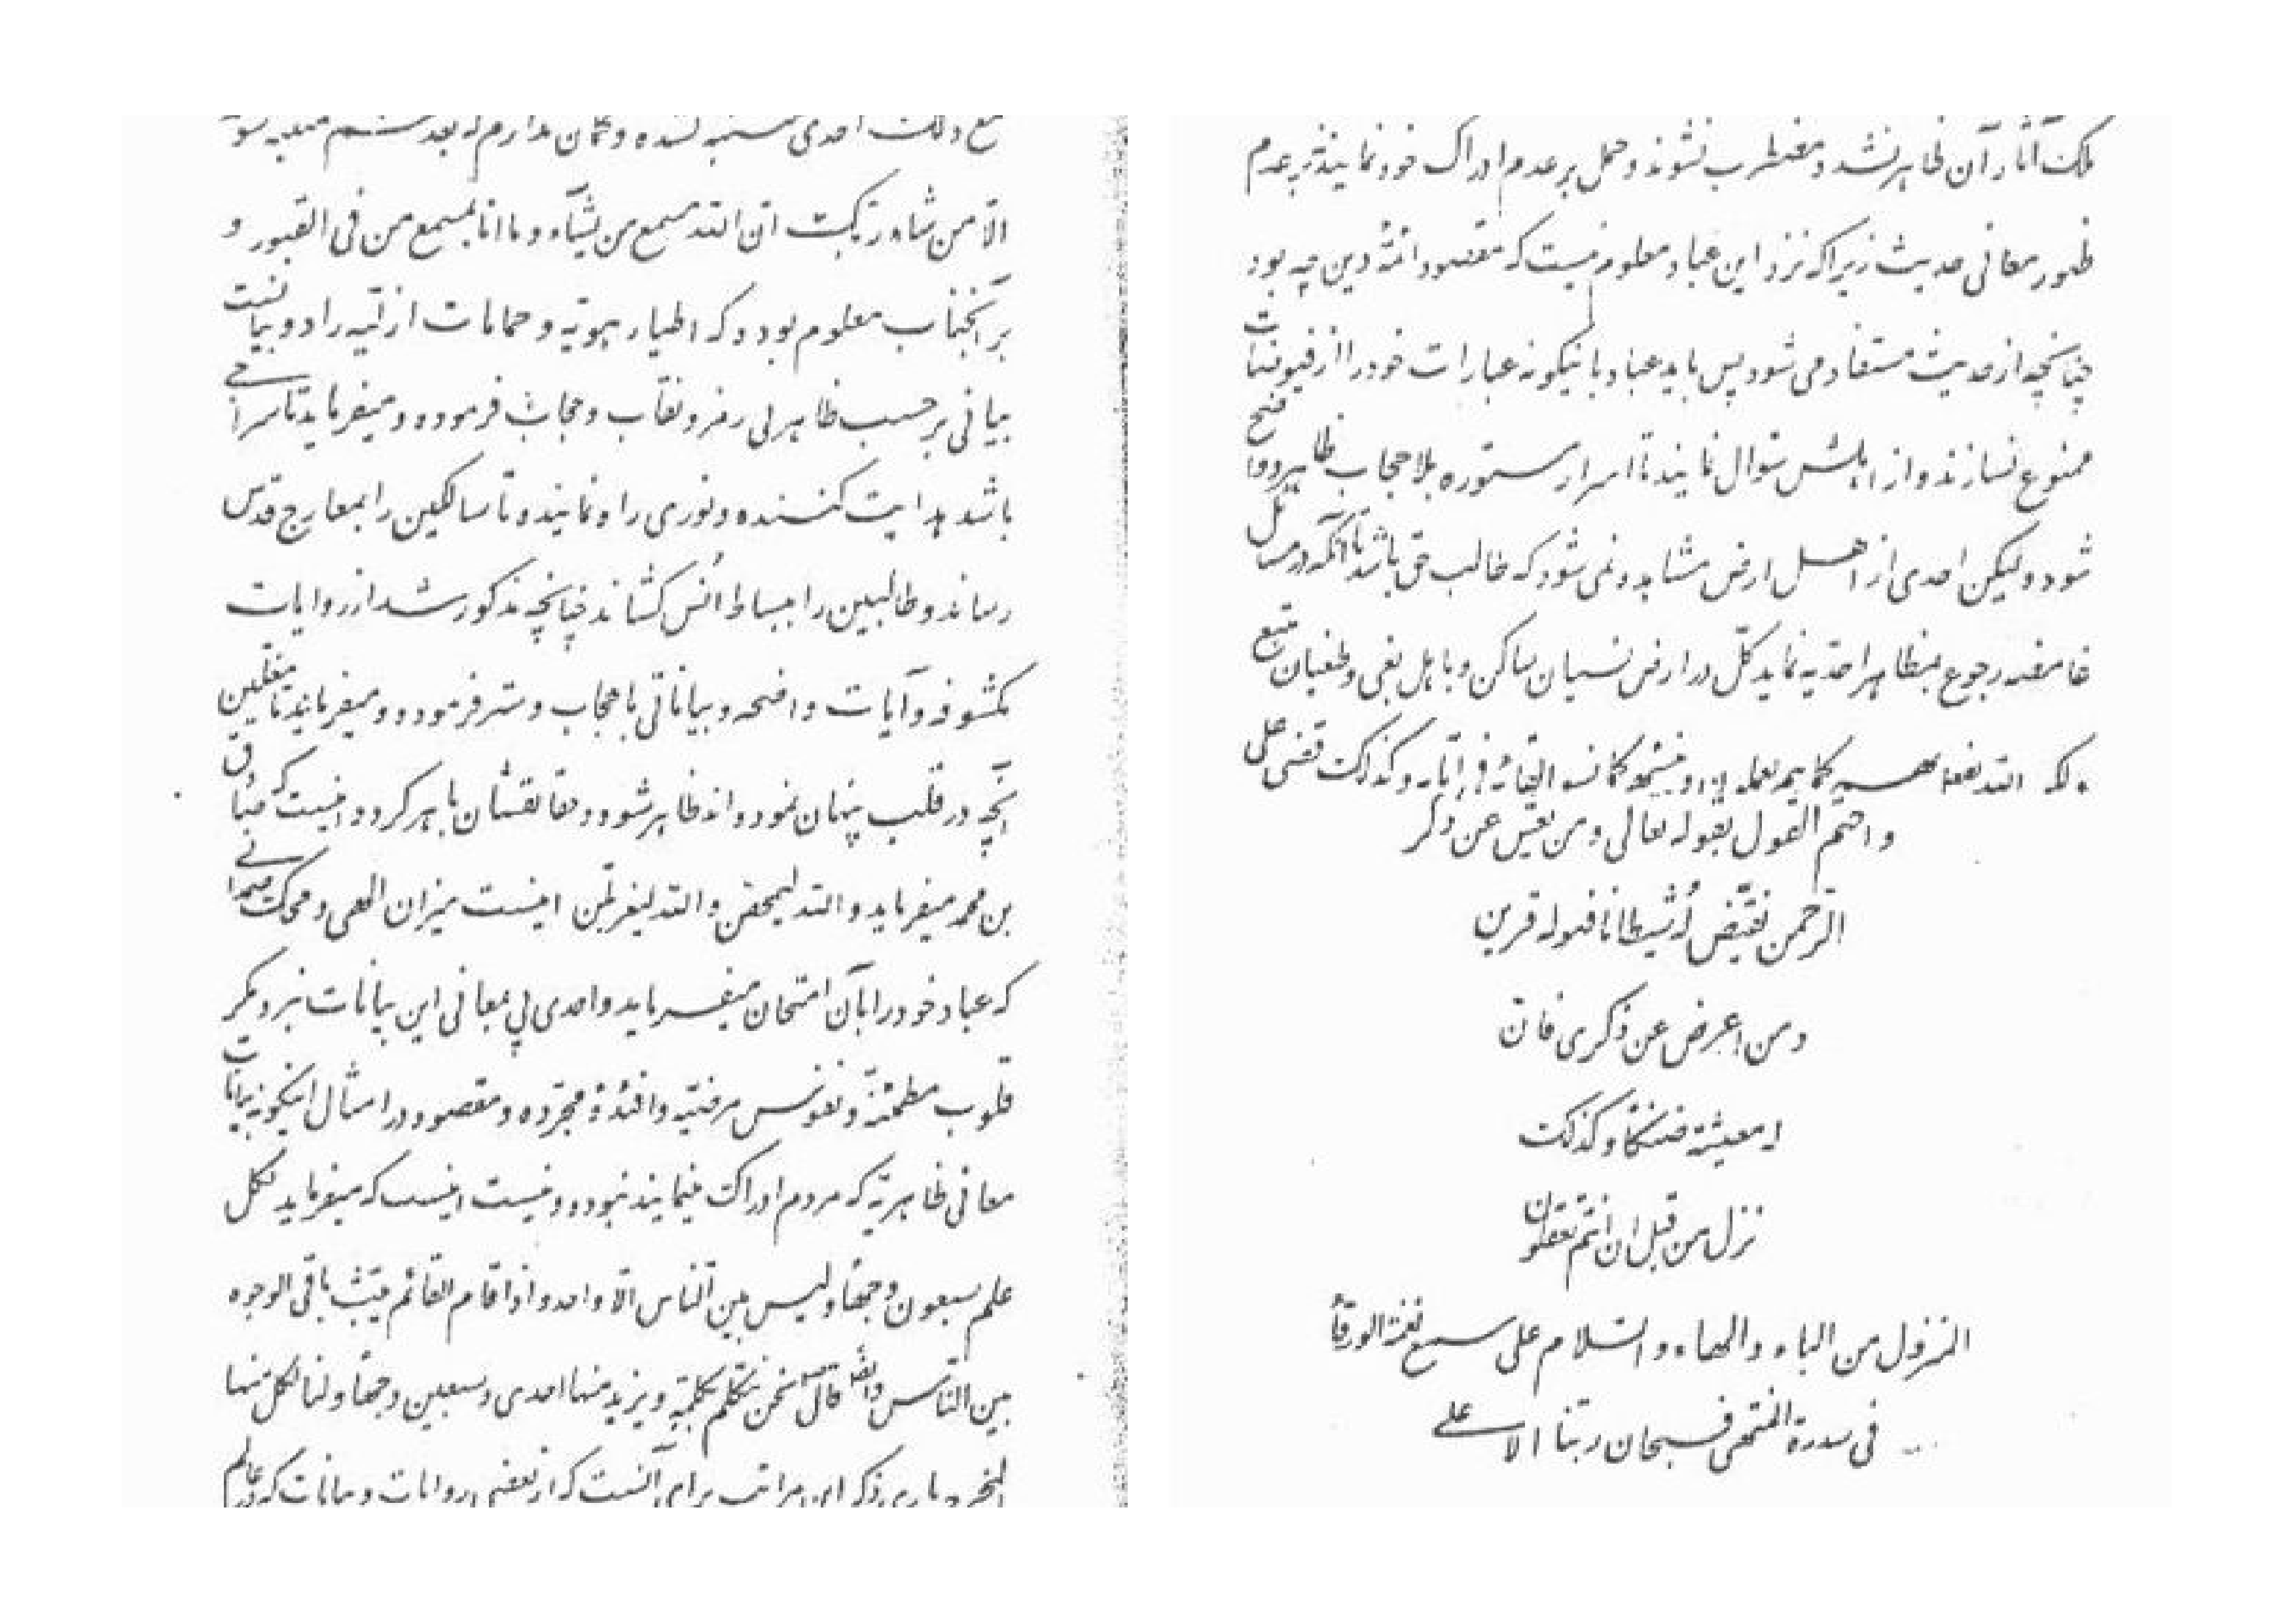 مع ذلك احدی متنبه نشده و گمان ندارم که بعد هم متنبه شوند
الّا من شاء ربّك انّ اللّه یسمع من یشآء و ما انا بمسمع من فی القبور و
بر آنجناب معلوم بوده که اطیار هویّه و حمامات ازلیّه را دو بیانست
بیانی بر حسب ظاهر بی رمز و نقاب و حجاب فرموده و میفرماید تا سراجی
باشد هدایت کننده و نوری راه نماینده و تا سالکین را بمعارج قدس
رساند و طالبین را ببساط اُنس کشاند چنانچه مذکور شد از روایات
مکشوفه و آیات واضحه و بیاناتی با حجاب و ستر فرموده و میفرمایند تا مغلّین
آنچه در قلب پنهان نموده‌اند ظاهر شود و حقائقشان باهر گردد اینست که صادق
بن محمد میفرماید واللّه لیمحّصنّ واللّه لیغربلنّ اینست میزان الهی و محک صمدانی
که عباد خود را بآن امتحان میفرماید و احدی پی بمعانی این بیانات نبرد مگر
قلوب مطمئنّه و نفوس مرضیّه و افئدهٔ مجرّده و مقصود در امثال اینگونه بیانات
معانی ظاهریّه که مردم ادراک مینمایند نبوده و نیست اینست که میفرماید لکلّ
علم سبعون وجهًا و لیس بین النّاس الّا واحد و اذا قام القائم یبثّ باقی الوجوه
بین النّاس و ایضًا قال نحن نتکلّم بکلمة و نرید منها احدی و سبعین وجهًا و لنا لکلّ منها
المخرج باری ذکر این مراتب برای آنست که از بعضی روایات و بیانات که در عالم
ملک آثار آن ظاهر نشده مضطرب نشوند و حمل بر عدم ادراک خود نمایند نه بر عدم
ظهور معانی حدیث زیرا که نزد این عباد معلوم نیست که مقصود ائمّهٔ دین چه بود
چنانچه از حدیث مستفاد می شود پس باید عباد باینگونه عبارات خود را از فیوضات
ممنوع نسازند و از اهلش سؤال نمایند تا اسرار مستوره بلا حجاب ظاهر و واضح
شود ولیکن احدی از اهل ارض مشاهده نمی شود که طالب حق باشد تا آنکه در مسائل
غامضه رجوع بمظاهر احدیّه نماید کلّ در ارض نسیان ساکن و با اهل بغی و طغیان متّبع
ولکن اللّه یفعل بهم کما هم یعملون و ینسیهم کما نسوا لقائه فی ایّامه و کذلك قضی علی
واختم القول بقوله تعالی و من یعش عن ذکر
الرّحمن نقیّض له شیطانًا فهو له قرین
و من اعرض عن ذکری فانّ
له معیشة ضنکًا و کذلك
نزّل من قبل ان انتم تعقلون
المنزول من الباء و الهاء و السّلام علی من سمع نغمة الورقآء
فی سدرة المنتهی فسبحان ربّنا الاعلی